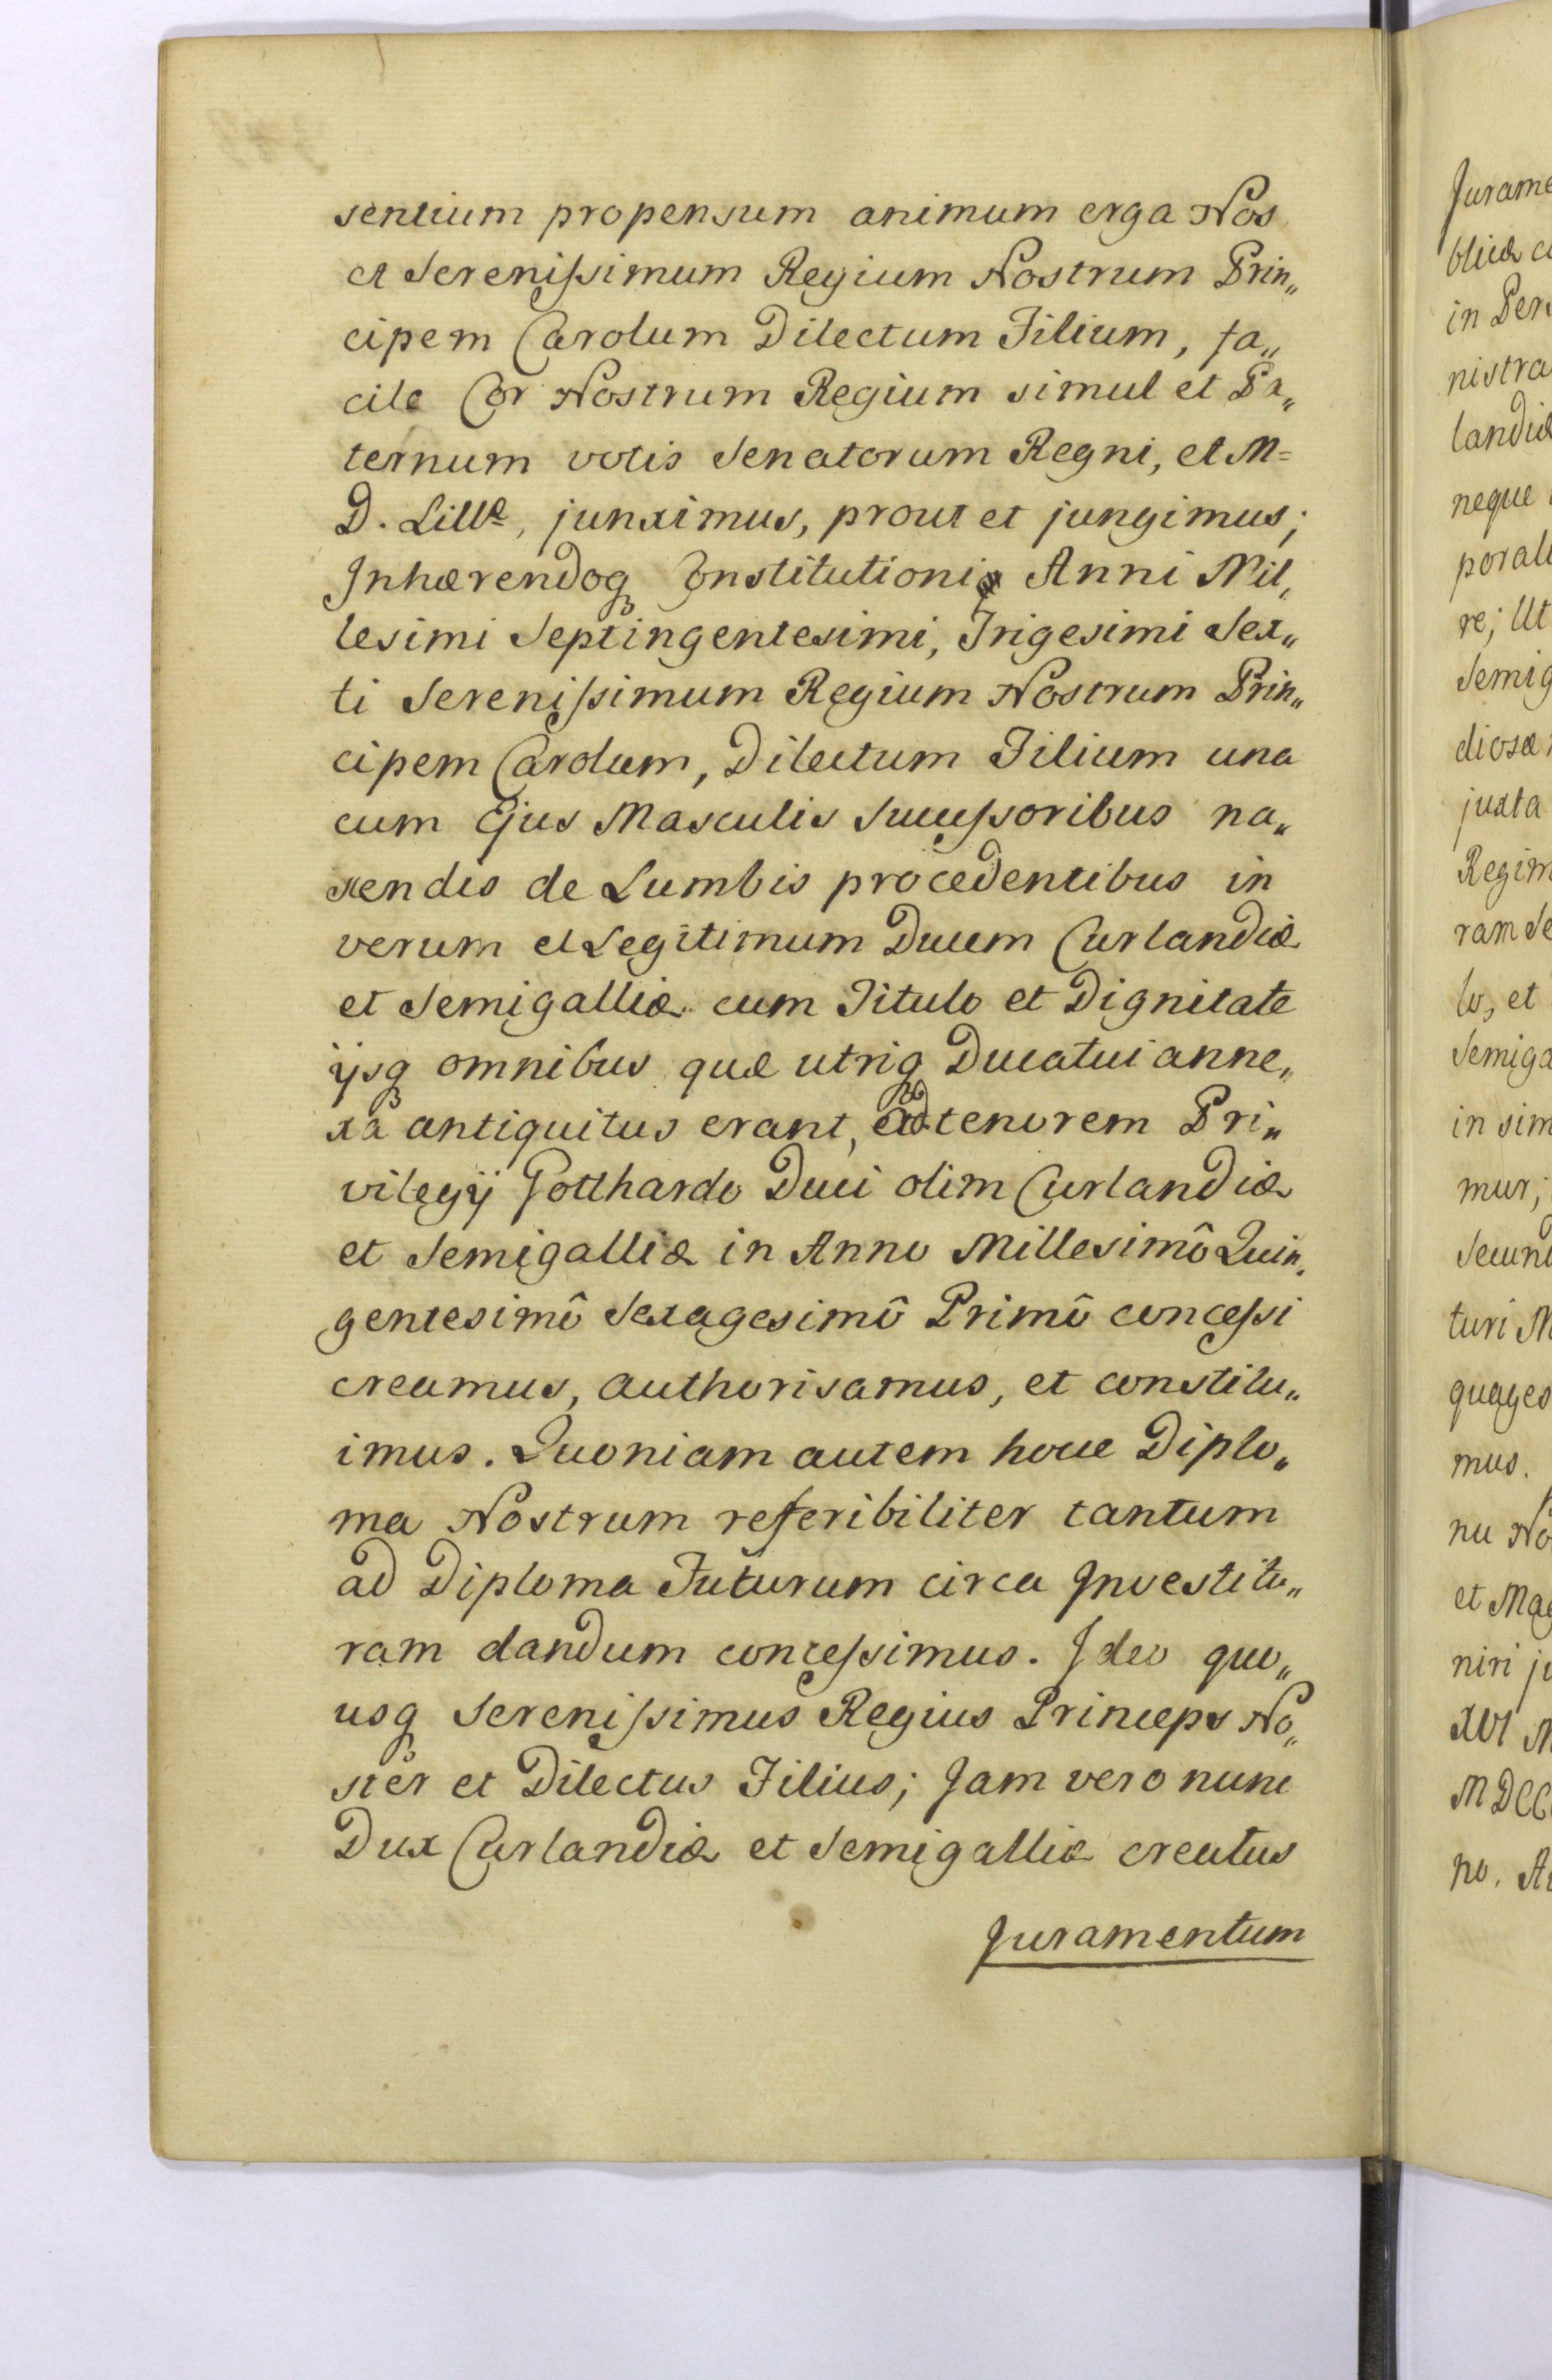 sentium propensum animum erga Nos
et Serenissimum Regium Nostrum Prin„
cipem Carolum Dilectum Filium, fa„
cile Cor Nostrum Regium simul et Pa„
ternum votis Senatorum Regni, et M=
D. Litt͠æ, junximus, prout et jungimus;
Inhærendoq Constitutioni Anni Mil„
lesimi Septingentesimi, Trigesimi Sex„
ti Serenissimum Regium Nostrum Prin„
cipem Carolum, Dilectum Filium una
cum Ejus Masculis Successoribus na„
scendis de Lumbis procedentibus in
verum et Legitimum Ducem Curlandiæ
et Semigalliæ cum Titulo et Dignitate
ijsq omnibus quæ utriq Ducatui anne„
xa antiquitus erant, ad tenorem Pri„
vilegij Gotthardo Duci olim Curlandiæ
et Semigalliæ in Anno Millesimô Quin„
gentesimô Sexagesimô Primô concessi
creamus, authorisamus, et constitu„
imus. Quoniam autem hocce Diplo„
ma Nostrum referibiliter tantum
ad Diploma Futurum circa Investitu„
ram dandum concessimus. Ideo quo„
usq Serenissimus Regius Princeps No„
ster et Dilectus Filius; Jam vero nunc
Dux Curlandiæ et Semigalliæ creatus
Juramentum
Jurame
blicæ co
in Pers
nistra
landiæ
neque
porale
re; Ut
Semig
diosæ
juxta
Regim
ram Se
lo, et
Semiga
in sim
mur;
Secund
turi M
quages
mus.
nu No
et Mag
niri ju
XVI M
MDCC
no. A